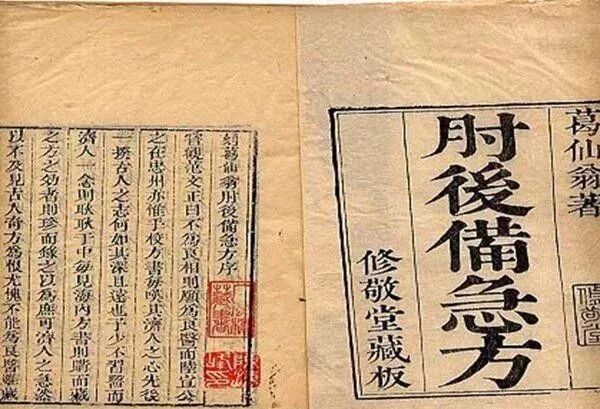 葛仙翁著
肘後備急方
修敬堂藏板
刻葛仙翁肘後備急方序
嘗觀范文正曰不爲良相則願爲良醫而陸宣公
之在忠州亦惟手校方書每嘆其濟人之心先後
一揆古人之志何如其深且遠也予少不習醫而
濟人一念則耿耿于中每見海内方書則購而藏
之方之効者則珍而錄之以爲庶可濟人之急然
以不及見古人奇方爲恨尤愧不能爲良醫雖藏